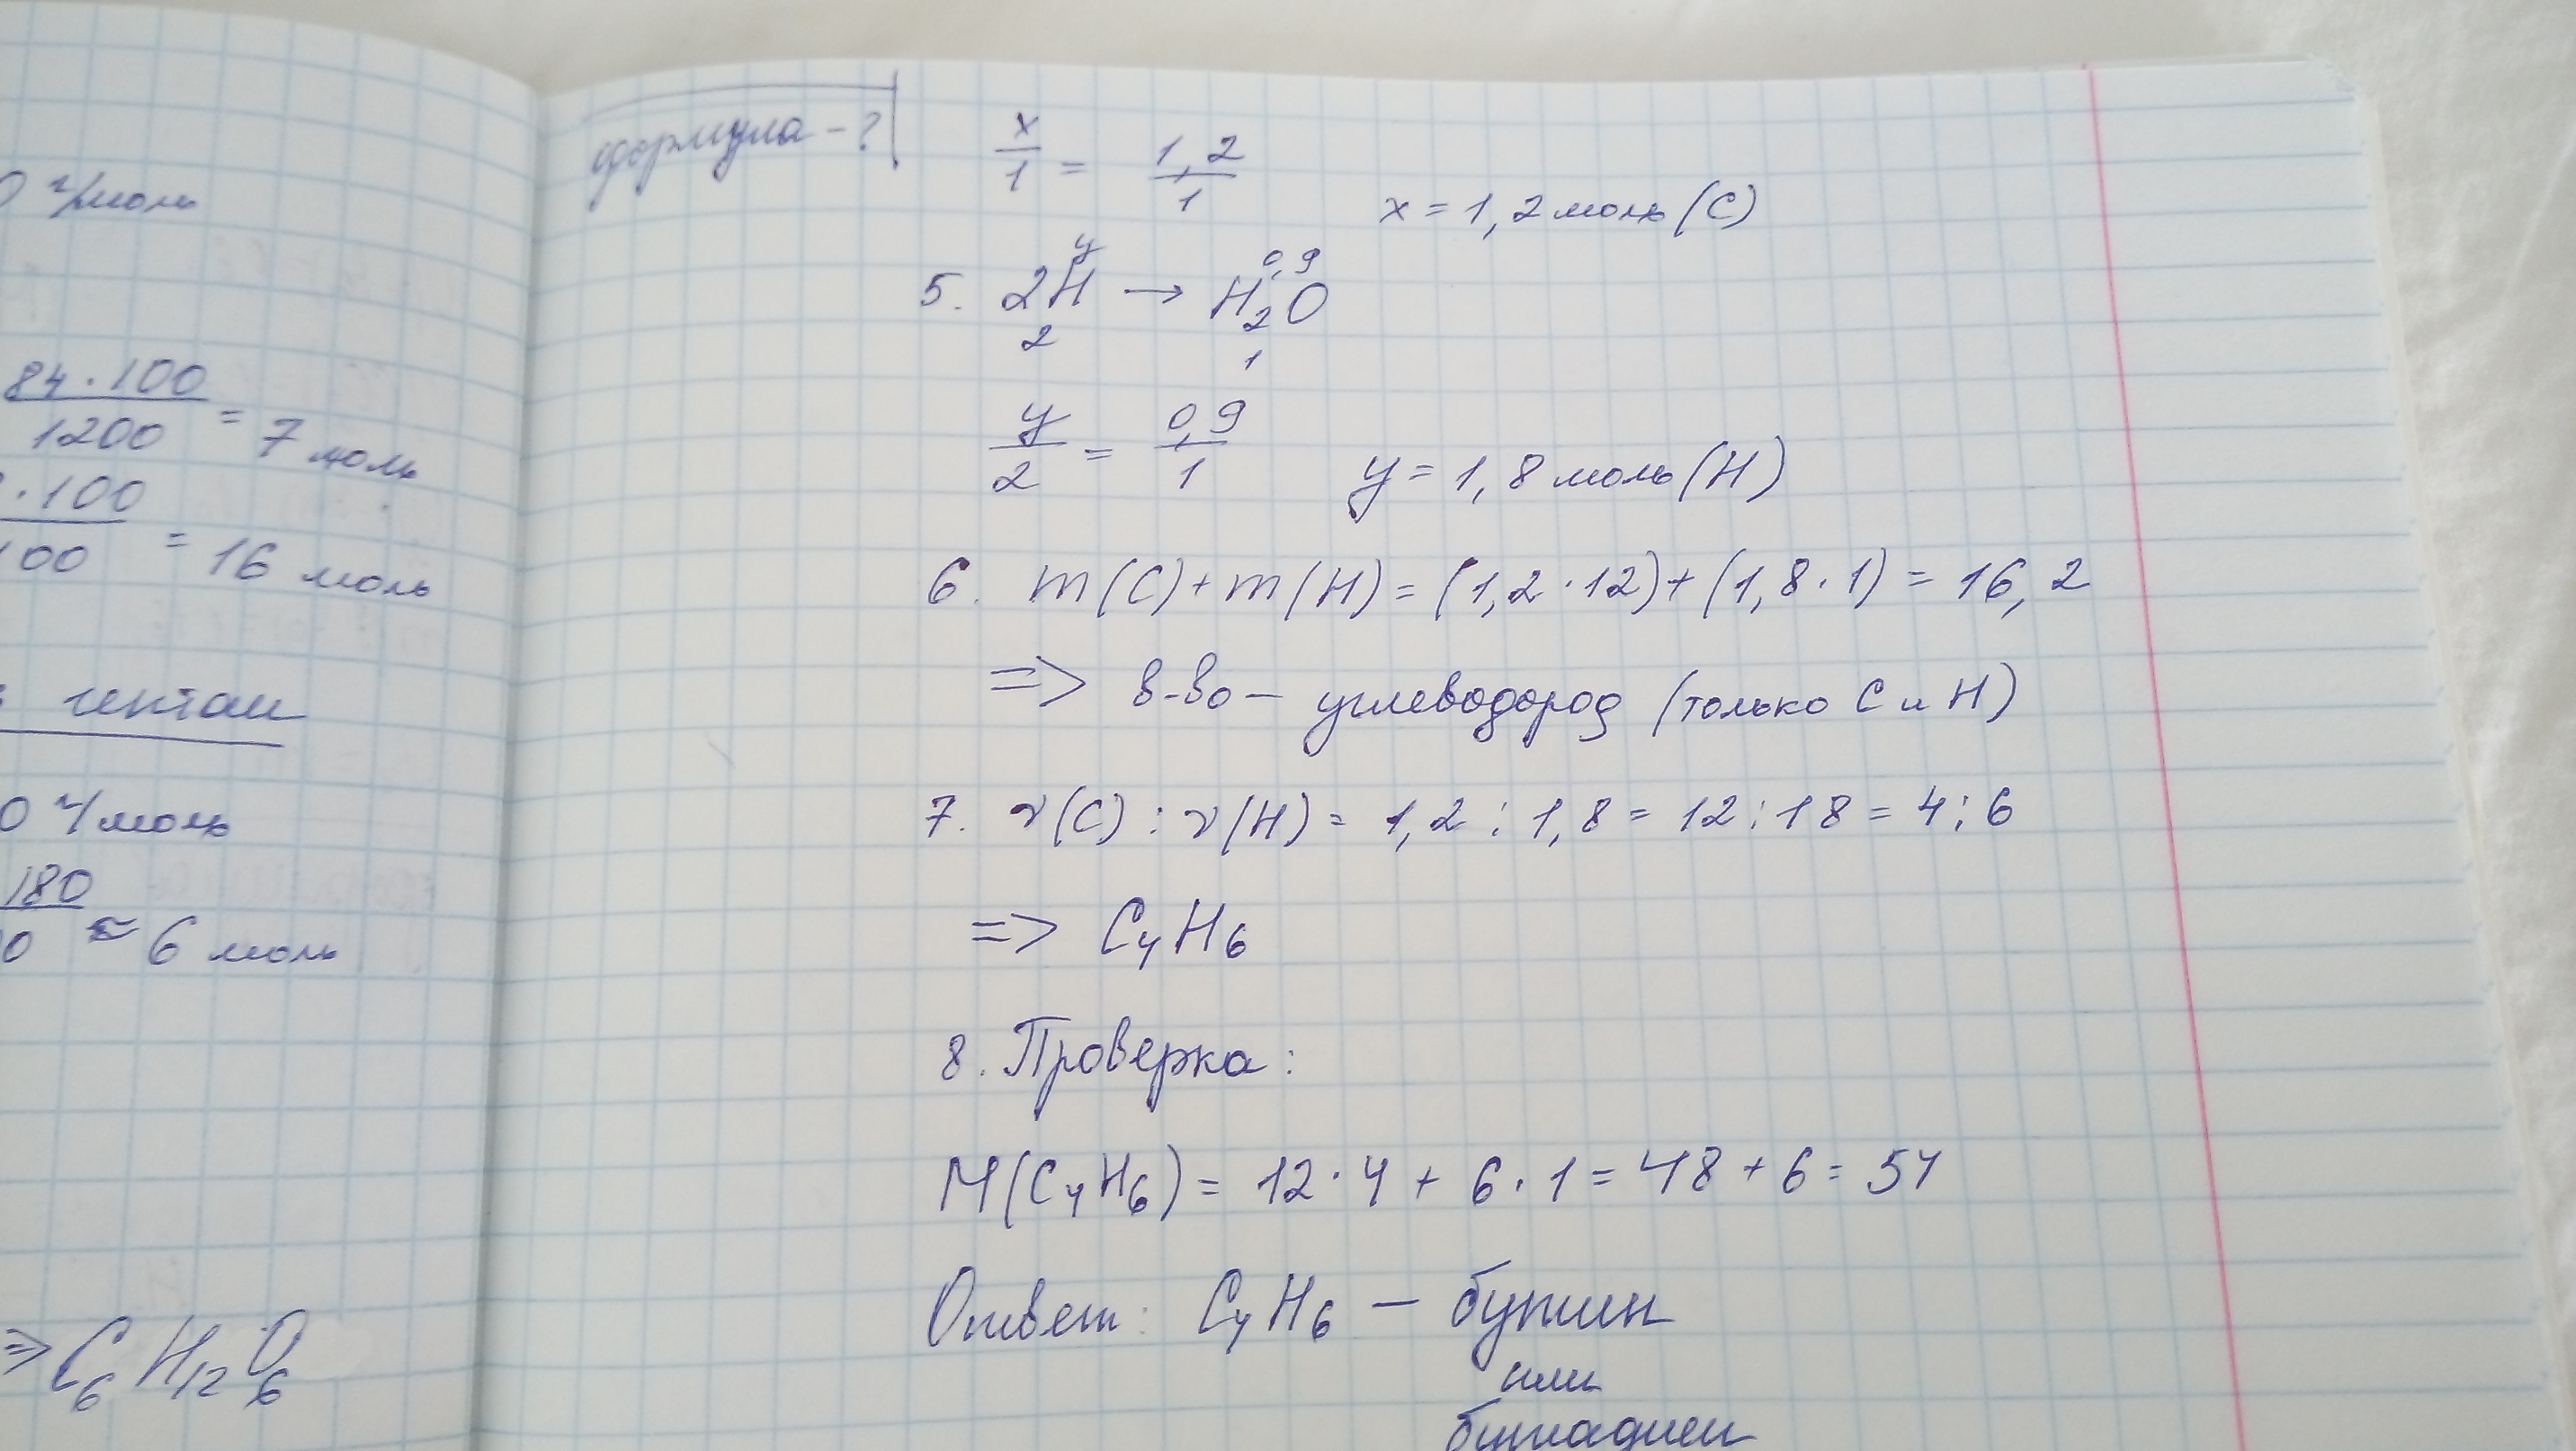 0 г/моль
84·100
1200 = 7 моль
·100
100 = 16 моль
гептан
0 г/моль
180
0 ≈ 6 моль
=> C6H12O6
формула - ?
x/1 = 1,2/1
x = 1,2 моль (C)
y 0,9
5. 2H → H2O
2 1
y/2 = 0,9/1 y = 1,8 моль (H)
6. m(C) + m(H) = (1,2·12) + (1,8·1) = 16,2
=> в-во – углеводород (только C и H)
7. ν(C) : ν(H) = 1,2 : 1,8 = 12 : 18 = 4 : 6
=> C4H6
8. Проверка:
M(C4H6) = 12·4 + 6·1 = 48 + 6 = 54
Ответ: C4H6 – бутин
или
бутадиен